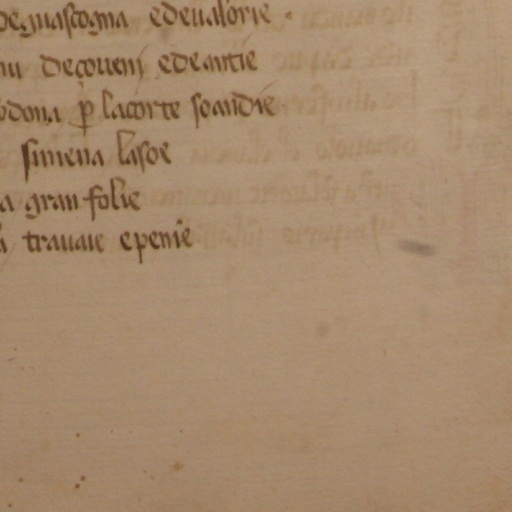 deguascogna edeualorie.
deçoueni edeantie
dona p̱ lacorte soaudie
simena lasoe
a gran folie
trauaie epenie